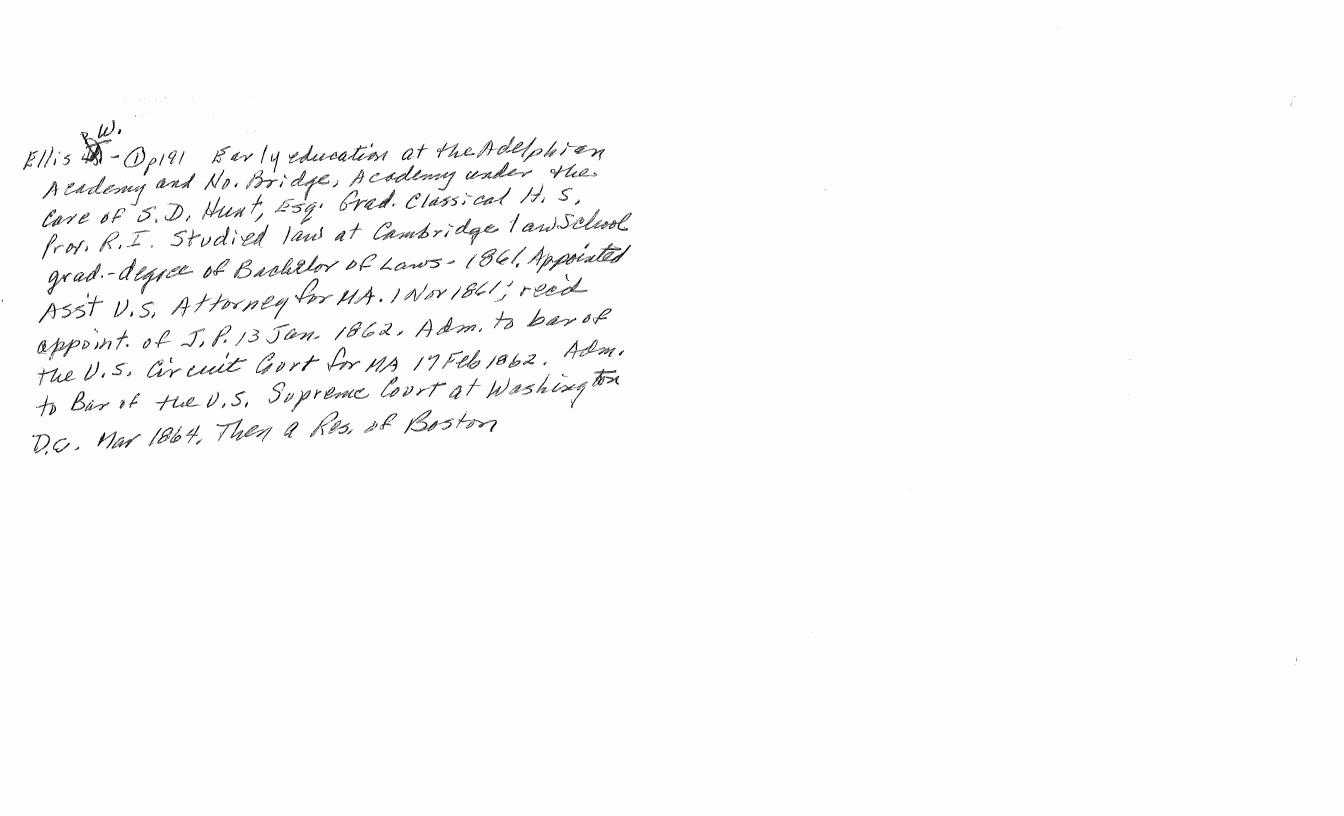 W.
Ellis - ① p191 Early education at the Adelphian
Academy and No. Bridge. Academy under the
care of S. D. Hunt, Esq. Grad. Classical H. S.
Prov. R.I. Studied law at Cambridge law School
grad.-degree of Bachelor of Laws - 1861. Appointed
Ass't U.S. Attorney for MA. 1 Nov 1861; rec'd
appoint. of J. P. 13 Jan. 1862. Adm. to bar of
the U.S. Circuit Court for MA 17 Feb 1862. Adm.
to Bar of the U.S. Supreme Court at Washington
D.C. Mar 1864. Then a Res. of Boston